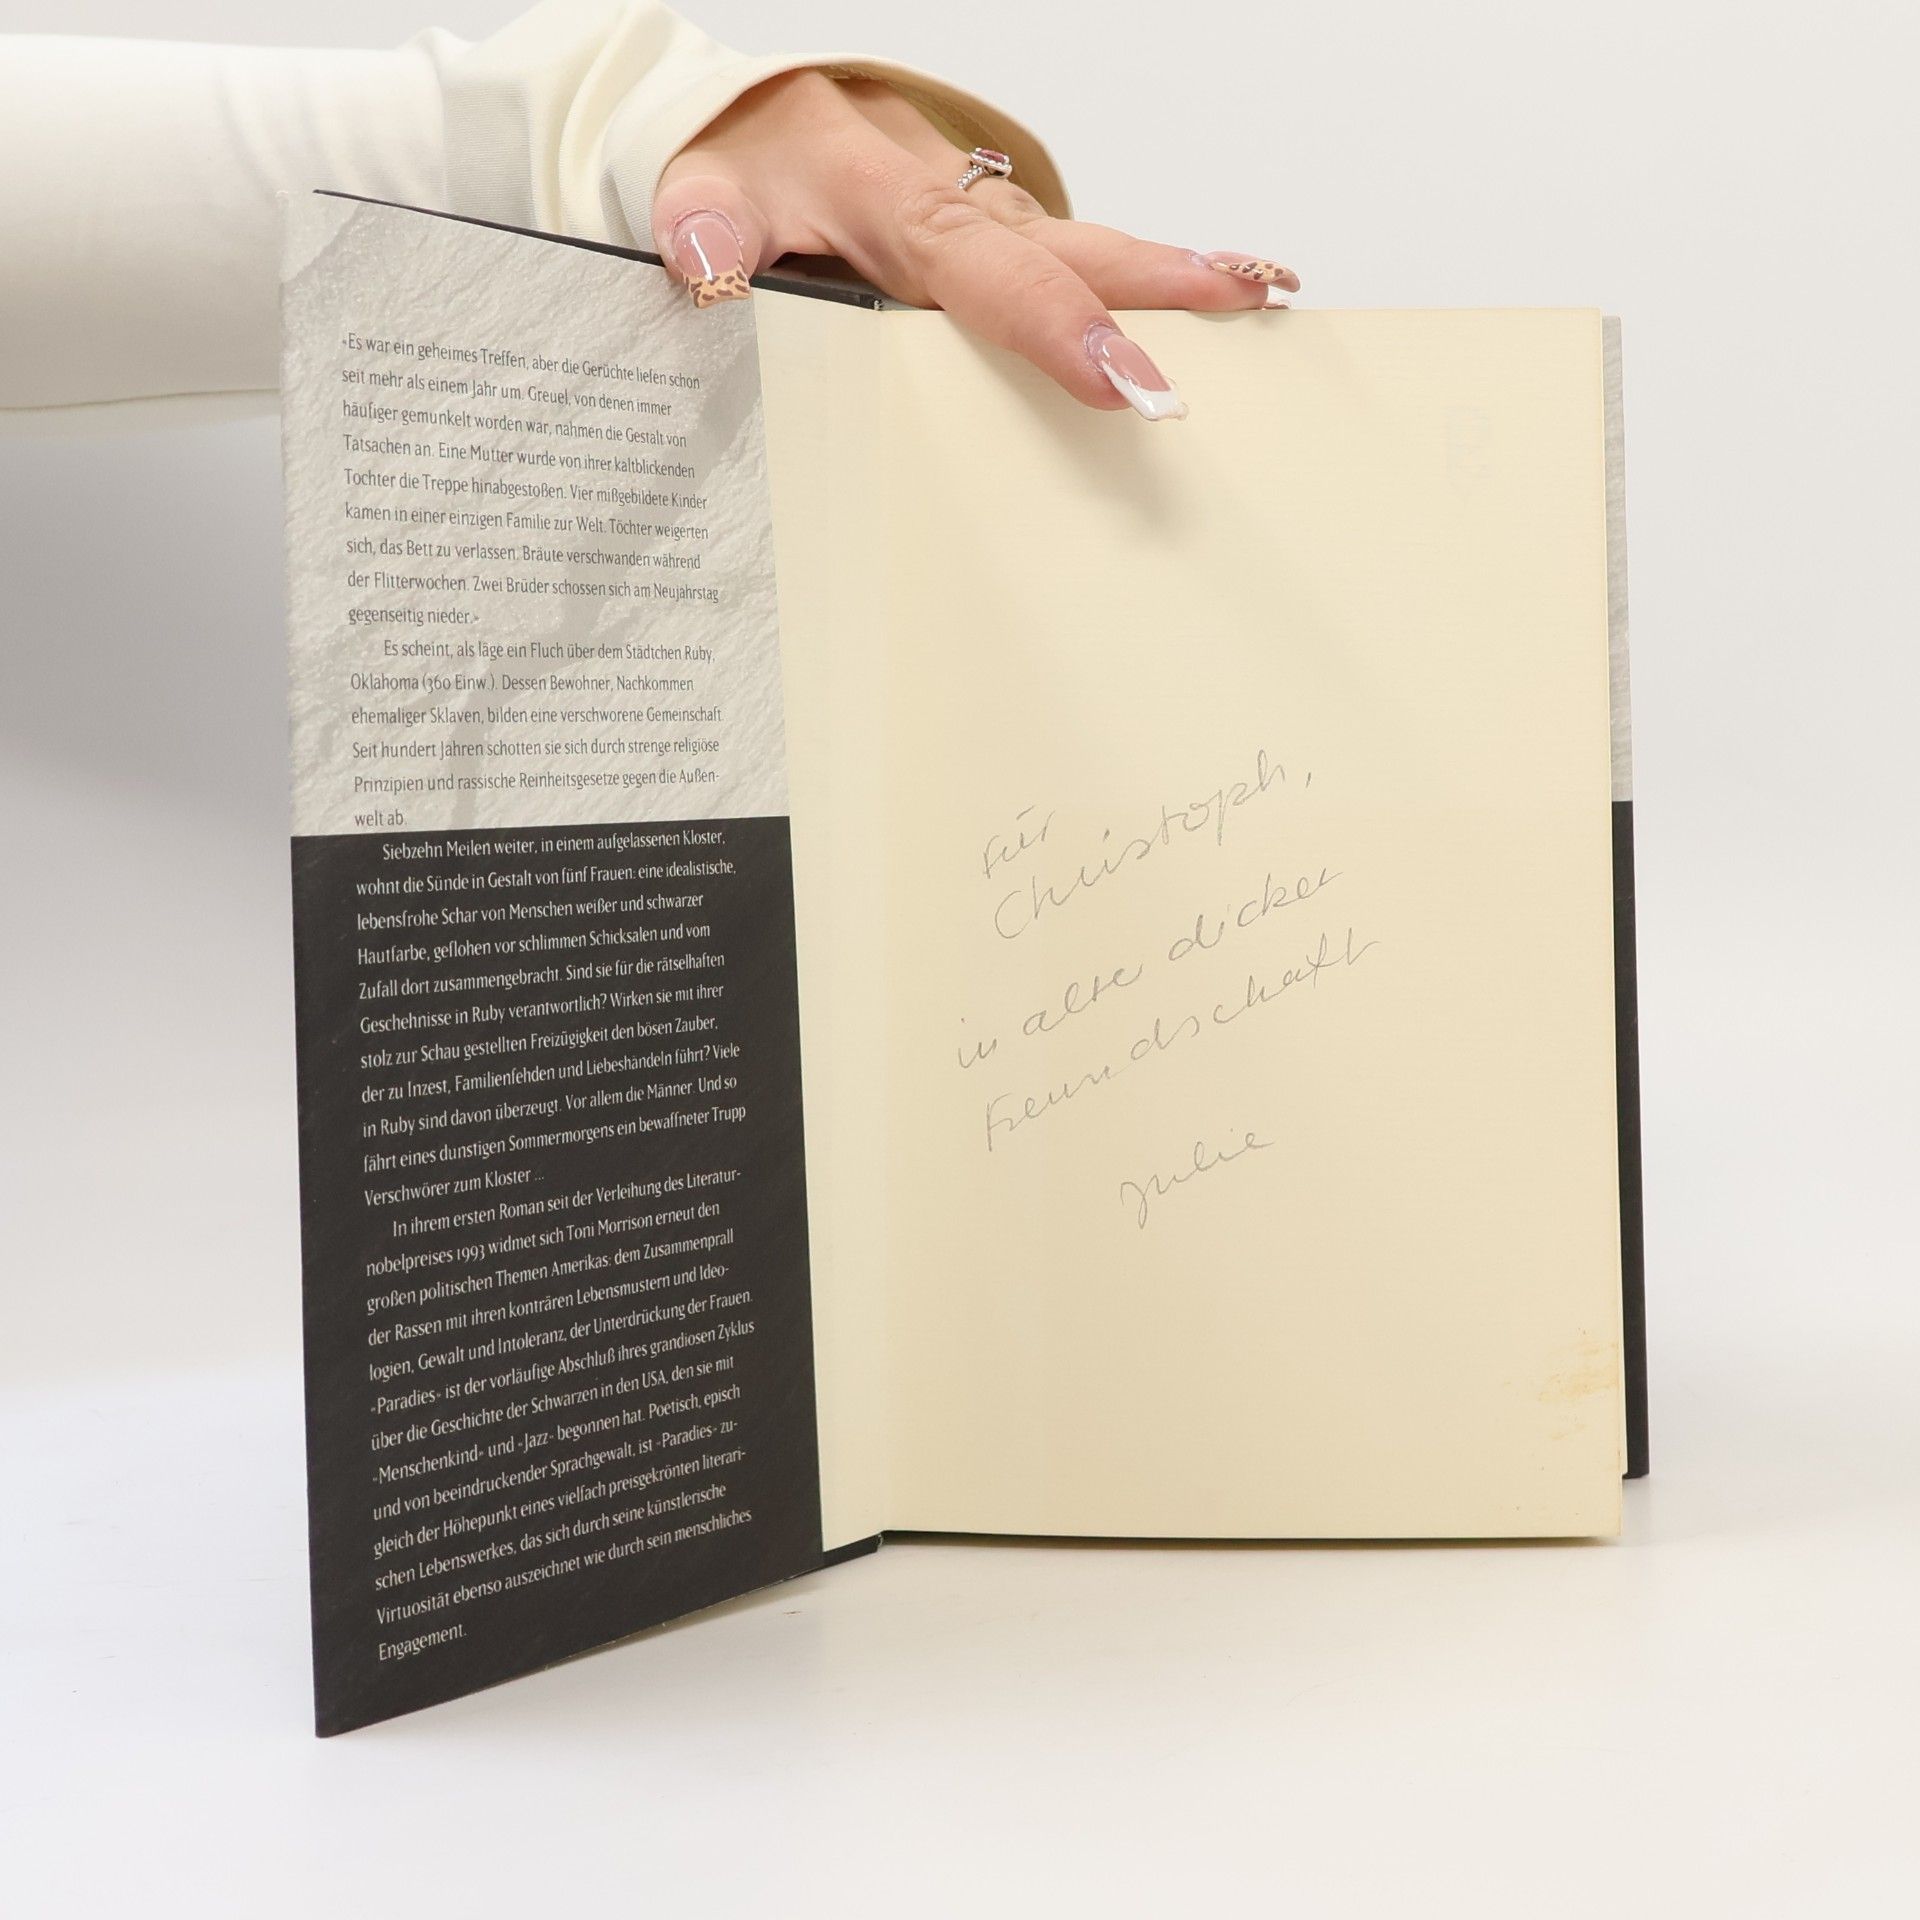 »Es war ein geheimes Treffen, aber die Gerüchte liefen schon
seit mehr als einem Jahr um. Greuel, von denen immer
häufiger gemunkelt worden war, nahmen die Gestalt von
Tatsachen an. Eine Mutter wurde von ihrer kaltblickenden
Tochter die Treppe hinabgestoßen. Vier mißgebildete Kinder
kamen in einer einzigen Familie zur Welt. Töchter weigerten
sich, das Bett zu verlassen. Bräute verschwanden während
der Flitterwochen. Zwei Brüder schossen sich am Neujahrstag
gegenseitig nieder.«
Es scheint, als läge ein Fluch über dem Städtchen Ruby,
Oklahoma (360 Einw.). Dessen Bewohner, Nachkommen
ehemaliger Sklaven, bilden eine verschworene Gemeinschaft.
Seit hundert Jahren schotten sie sich durch strenge religiöse
Prinzipien und rassische Reinheitsgesetze gegen die Außen-
welt ab.
Siebzehn Meilen weiter, in einem aufgelassenen Kloster,
wohnt die Sünde in Gestalt von fünf Frauen: eine idealistische,
lebensfrohe Schar von Menschen weißer und schwarzer
Hautfarbe, geflohen vor schlimmen Schicksalen und vom
Zufall dort zusammengebracht. Sind sie für die rätselhaften
Geschehnisse in Ruby verantwortlich? Wirken sie mit ihrer
stolz zur Schau gestellten Freizügigkeit den bösen Zauber,
der zu Inzest, Familienfehden und Liebeshändeln führt? Viele
in Ruby sind davon überzeugt. Vor allem die Männer. Und so
fährt eines dunstigen Sommermorgens ein bewaffneter Trupp
Verschwörer zum Kloster ...
In ihrem ersten Roman seit der Verleihung des Literatur-
nobelpreises 1993 widmet sich Toni Morrison erneut den
großen politischen Themen Amerikas: dem Zusammenprall
der Rassen mit ihren konträren Lebensmustern und Ideo-
logien, Gewalt und Intoleranz, der Unterdrückung der Frauen.
»Paradies« ist der vorläufige Abschluß ihres grandiosen Zyklus
über die Geschichte der Schwarzen in den USA, den sie mit
»Menschenkind« und »Jazz« begonnen hat. Poetisch, episch
und von beeindruckender Sprachgewalt, ist »Paradies« zu-
gleich der Höhepunkt eines vielfach preisgekrönten literari-
schen Lebenswerkes, das sich durch seine künstlerische
Virtuosität ebenso auszeichnet wie durch sein menschliches
Engagement.
Für
Christoph,
in alter dicker
Freundschaft
Julie